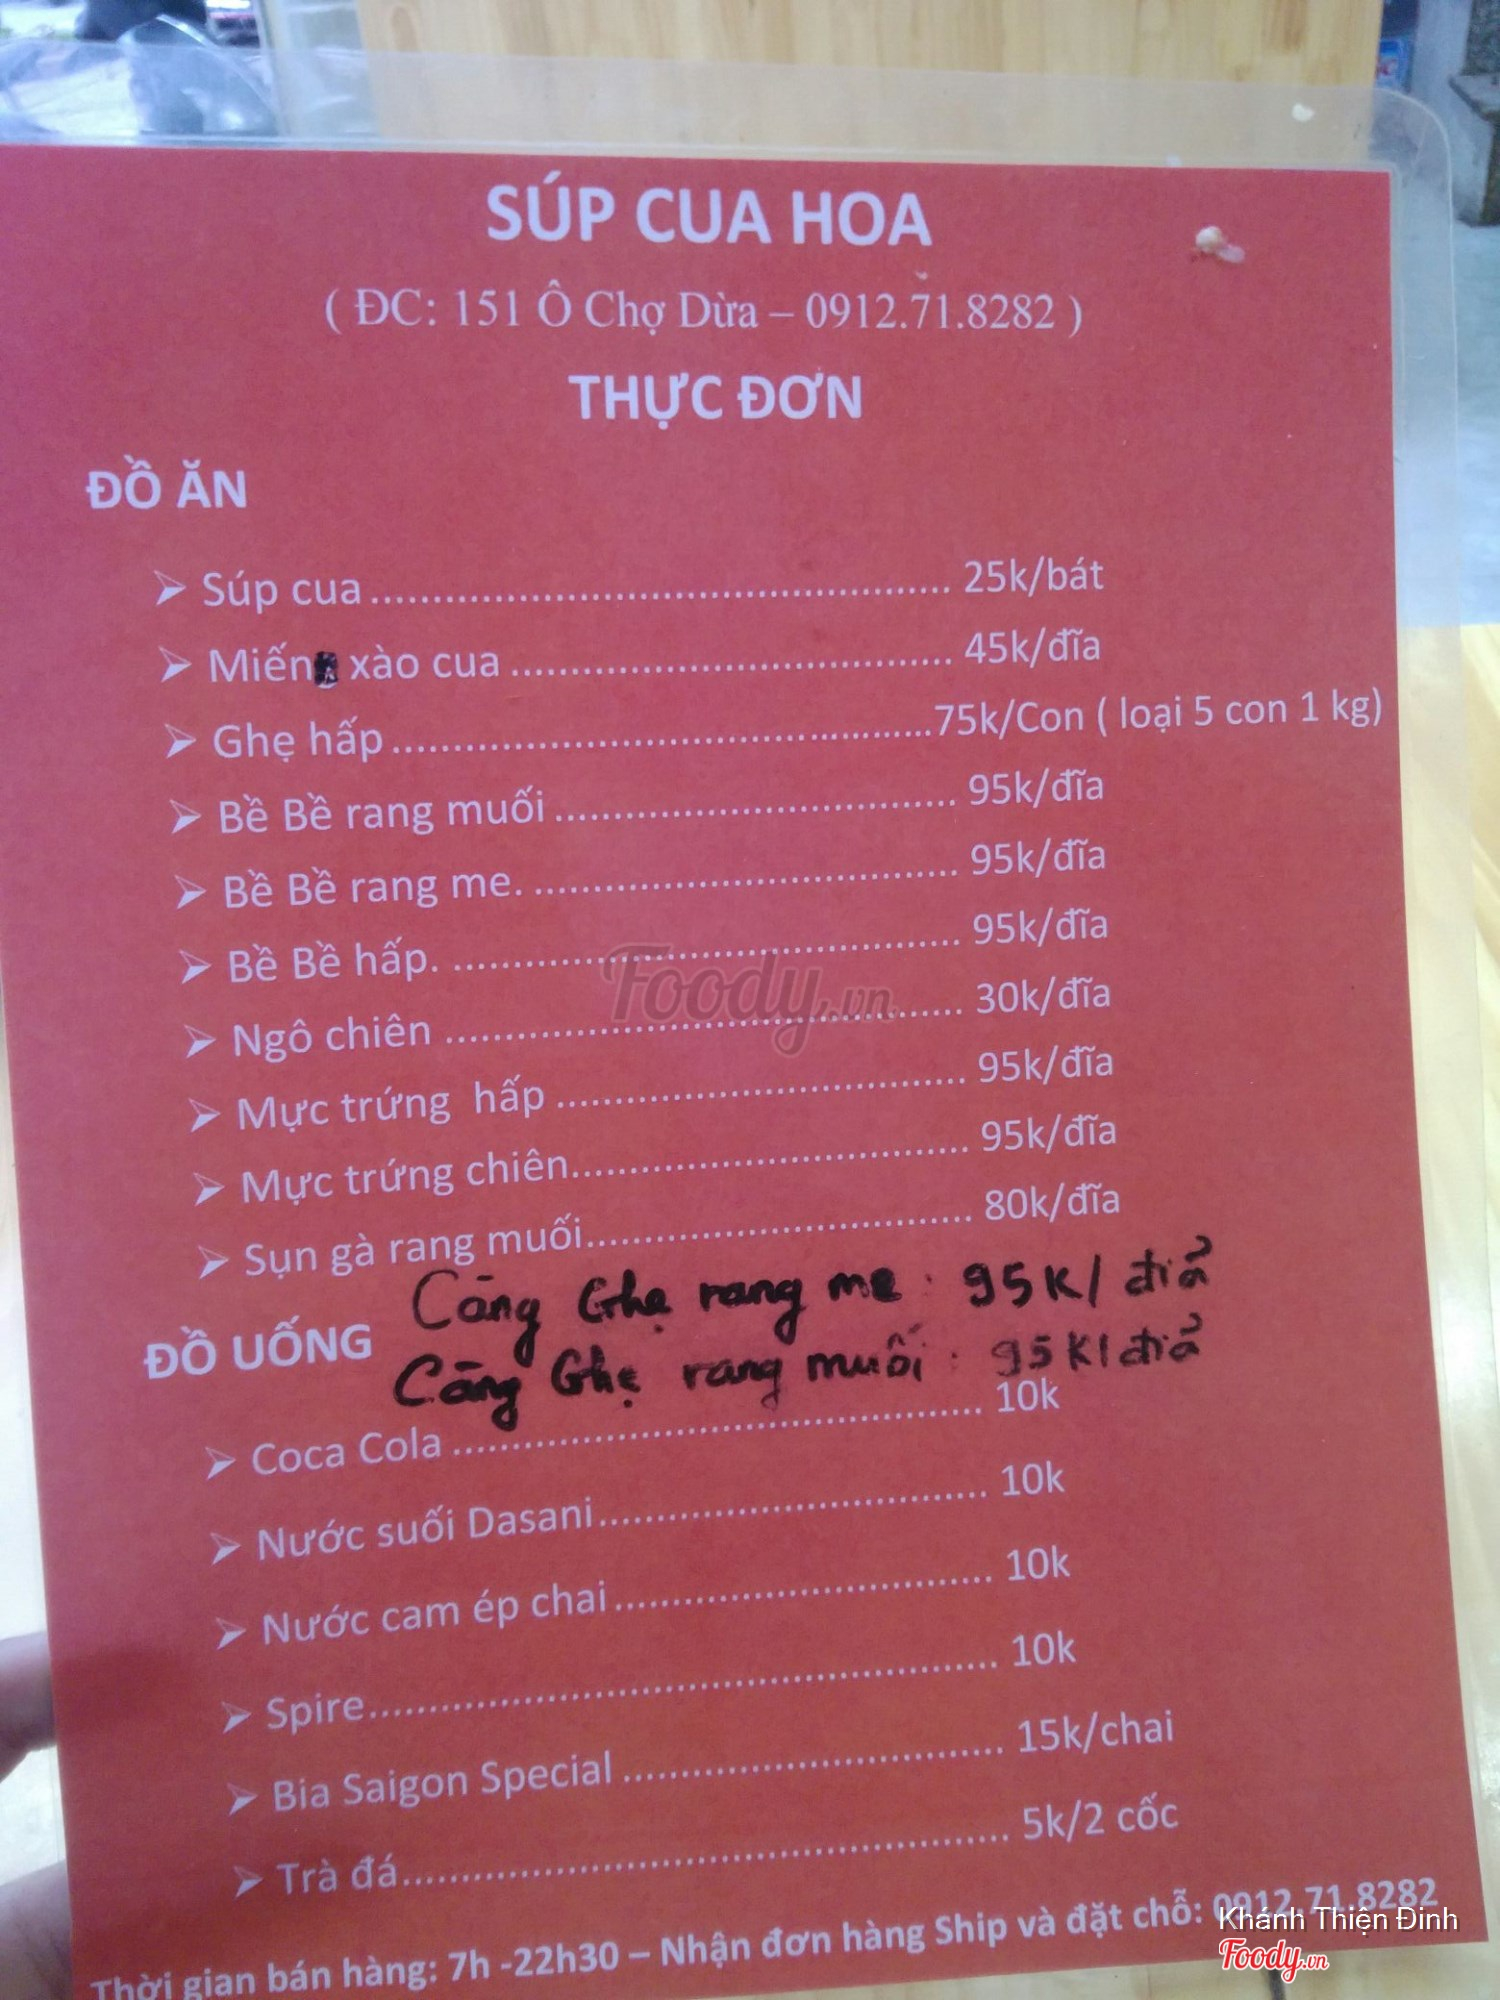 SÚP CUA HOA
( ĐC: 151 Ô Chợ Dừa – 0912.71.8282 )
THỰC ĐƠN
ĐỒ ĂN
➢ Súp cua.............................................. 25k/bát
➢ Miến xào cua .................................... 45k/đĩa
➢ Ghẹ hấp............................................75k/Con ( loại 5 con 1 kg)
➢ Bề Bề rang muối ................................. 95k/đĩa
➢ Bề Bề rang me. ................................... 95k/đĩa
➢ Bề Bề hấp. ......................................... 95k/đĩa
➢ Ngô chiên .......................................... 30k/đĩa
➢ Mực trứng hấp .................................. 95k/đĩa
➢ Mực trứng chiên................................. 95k/đĩa
➢ Sụn gà rang muối................................ 80k/đĩa
Càng Ghẹ rang me : 95K/ điã
Càng Ghẹ rang muối : 95K/điã
ĐỒ UỐNG
➢ Coca Cola ........................................... 10k
➢ Nước suối Dasani................................ 10k
➢ Nước cam ép chai............................... 10k
➢ Spire................................................... 10k
➢ Bia Saigon Special ............................... 15k/chai
➢ Trà đá................................................. 5k/2 cốc
Thời gian bán hàng: 7h -22h30 – Nhận đơn hàng Ship và đặt chỗ: 0912.71.8282
Foody.vn
Khánh Thiện Đinh
Foody.vn